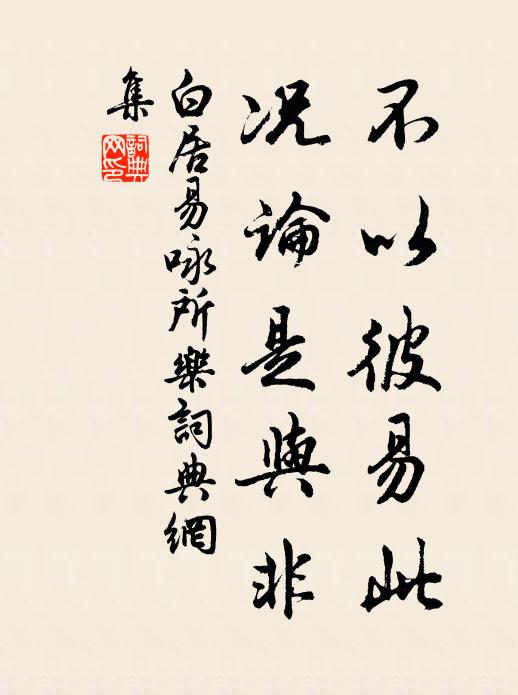 不以彼易此
况論是與非
白居易咏所樂詞典網
集
詞典網印